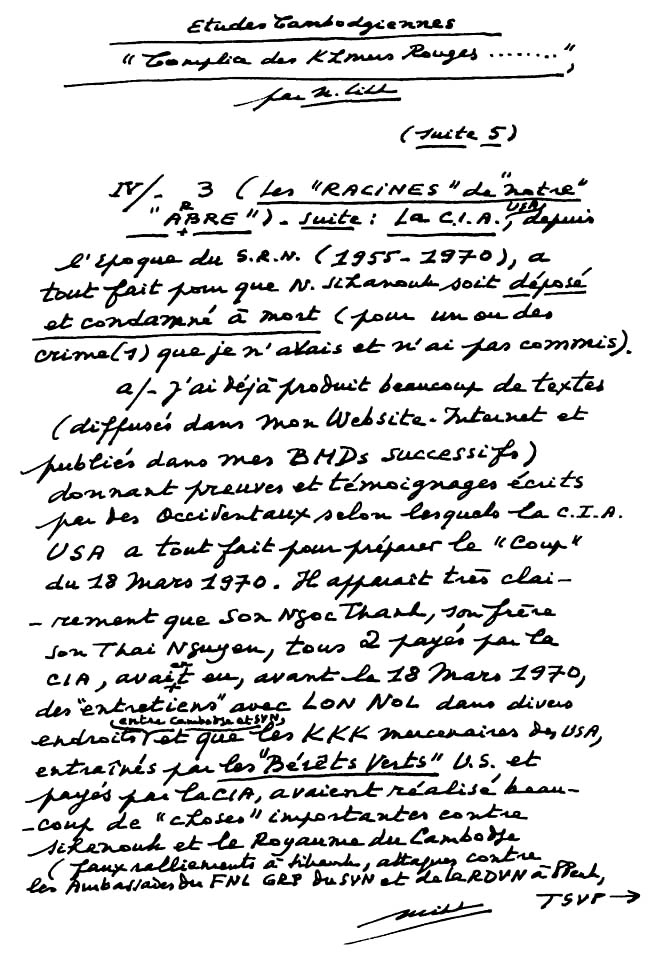 Etudes Cambodgiennes
"Complice des Khmers Rouges ........",
par N. Sihk
(suite 5)
IV/- 3 (Les "RACINES" de "notre"
"ARBRE") - suite : La C.I.A., USA, depuis
l'époque du S.R.N. (1955-1970), a
tout fait pour que N. Sihanouk soit déposé
et condamné à mort (pour un ou des
crime(s) que je n'avais et n'ai pas commis).
a/- J'ai déjà produit beaucoup de textes
(diffusés dans mon Website-Internet et
publiés dans mes BMDs successifs)
donnant preuves et témoignages écrits
par des Occidentaux selon lesquels la C.I.A.
USA a tout fait pour préparer le "Coup"
du 18 Mars 1970. Il apparait très clai-
-rement que Son Ngoc Thanh, son frère
Son Thai Nguyen, tous 2 payés par la
CIA, avaient eu, avant le 18 Mars 1970,
des "entretiens" avec LON NOL dans divers
endroits (entre Cambodge et SVN) et que les KKK mercenaires des USA,
entraînés par les "Bérêts Verts" U.S. et
payés par la CIA, avaient réalisé beau-
-coup de "choses" importantes contre
Sihanouk et le Royaume du Cambodge
(faux ralliements à Sihanouk, attaques contre
les Ambassades du FNL GRP du SVN et de la RDVN à PPenh,
TSVP →